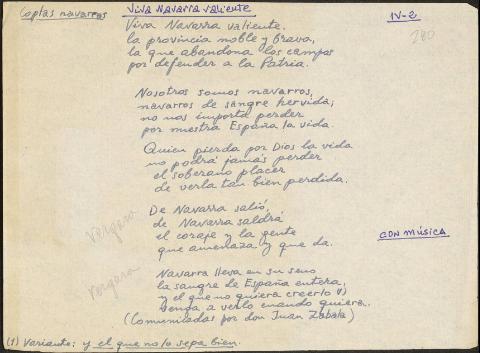 Coplas navarras
VIVA NAVARRA VALIENTE
IV-2
280
Viva Navarra valiente.
la provincia noble y brava,
la que abandona los campos
por defender a la Patria.
Nosotros somos navarros,
navarros de sangre hervida;
no nos importa perder
por nuestra España la vida.
Quien pierda por Dios la vida
no podrá jamás perder
el soberano placer
de verla tan bien perdida.
De Navarra salió,
de Navarra saldrá
el coraje y la gente
que amenaza y que da.
Vergara
CON MÚSICA
Navarra lleva en su seno
la sangre de España entera,
y el que no quiera creerlo (1)
venga a verlo cuando quiera.
Vergara
(Comunicadas por don Juan Zabala)
(1) Variante: y el que no lo sepa bien.